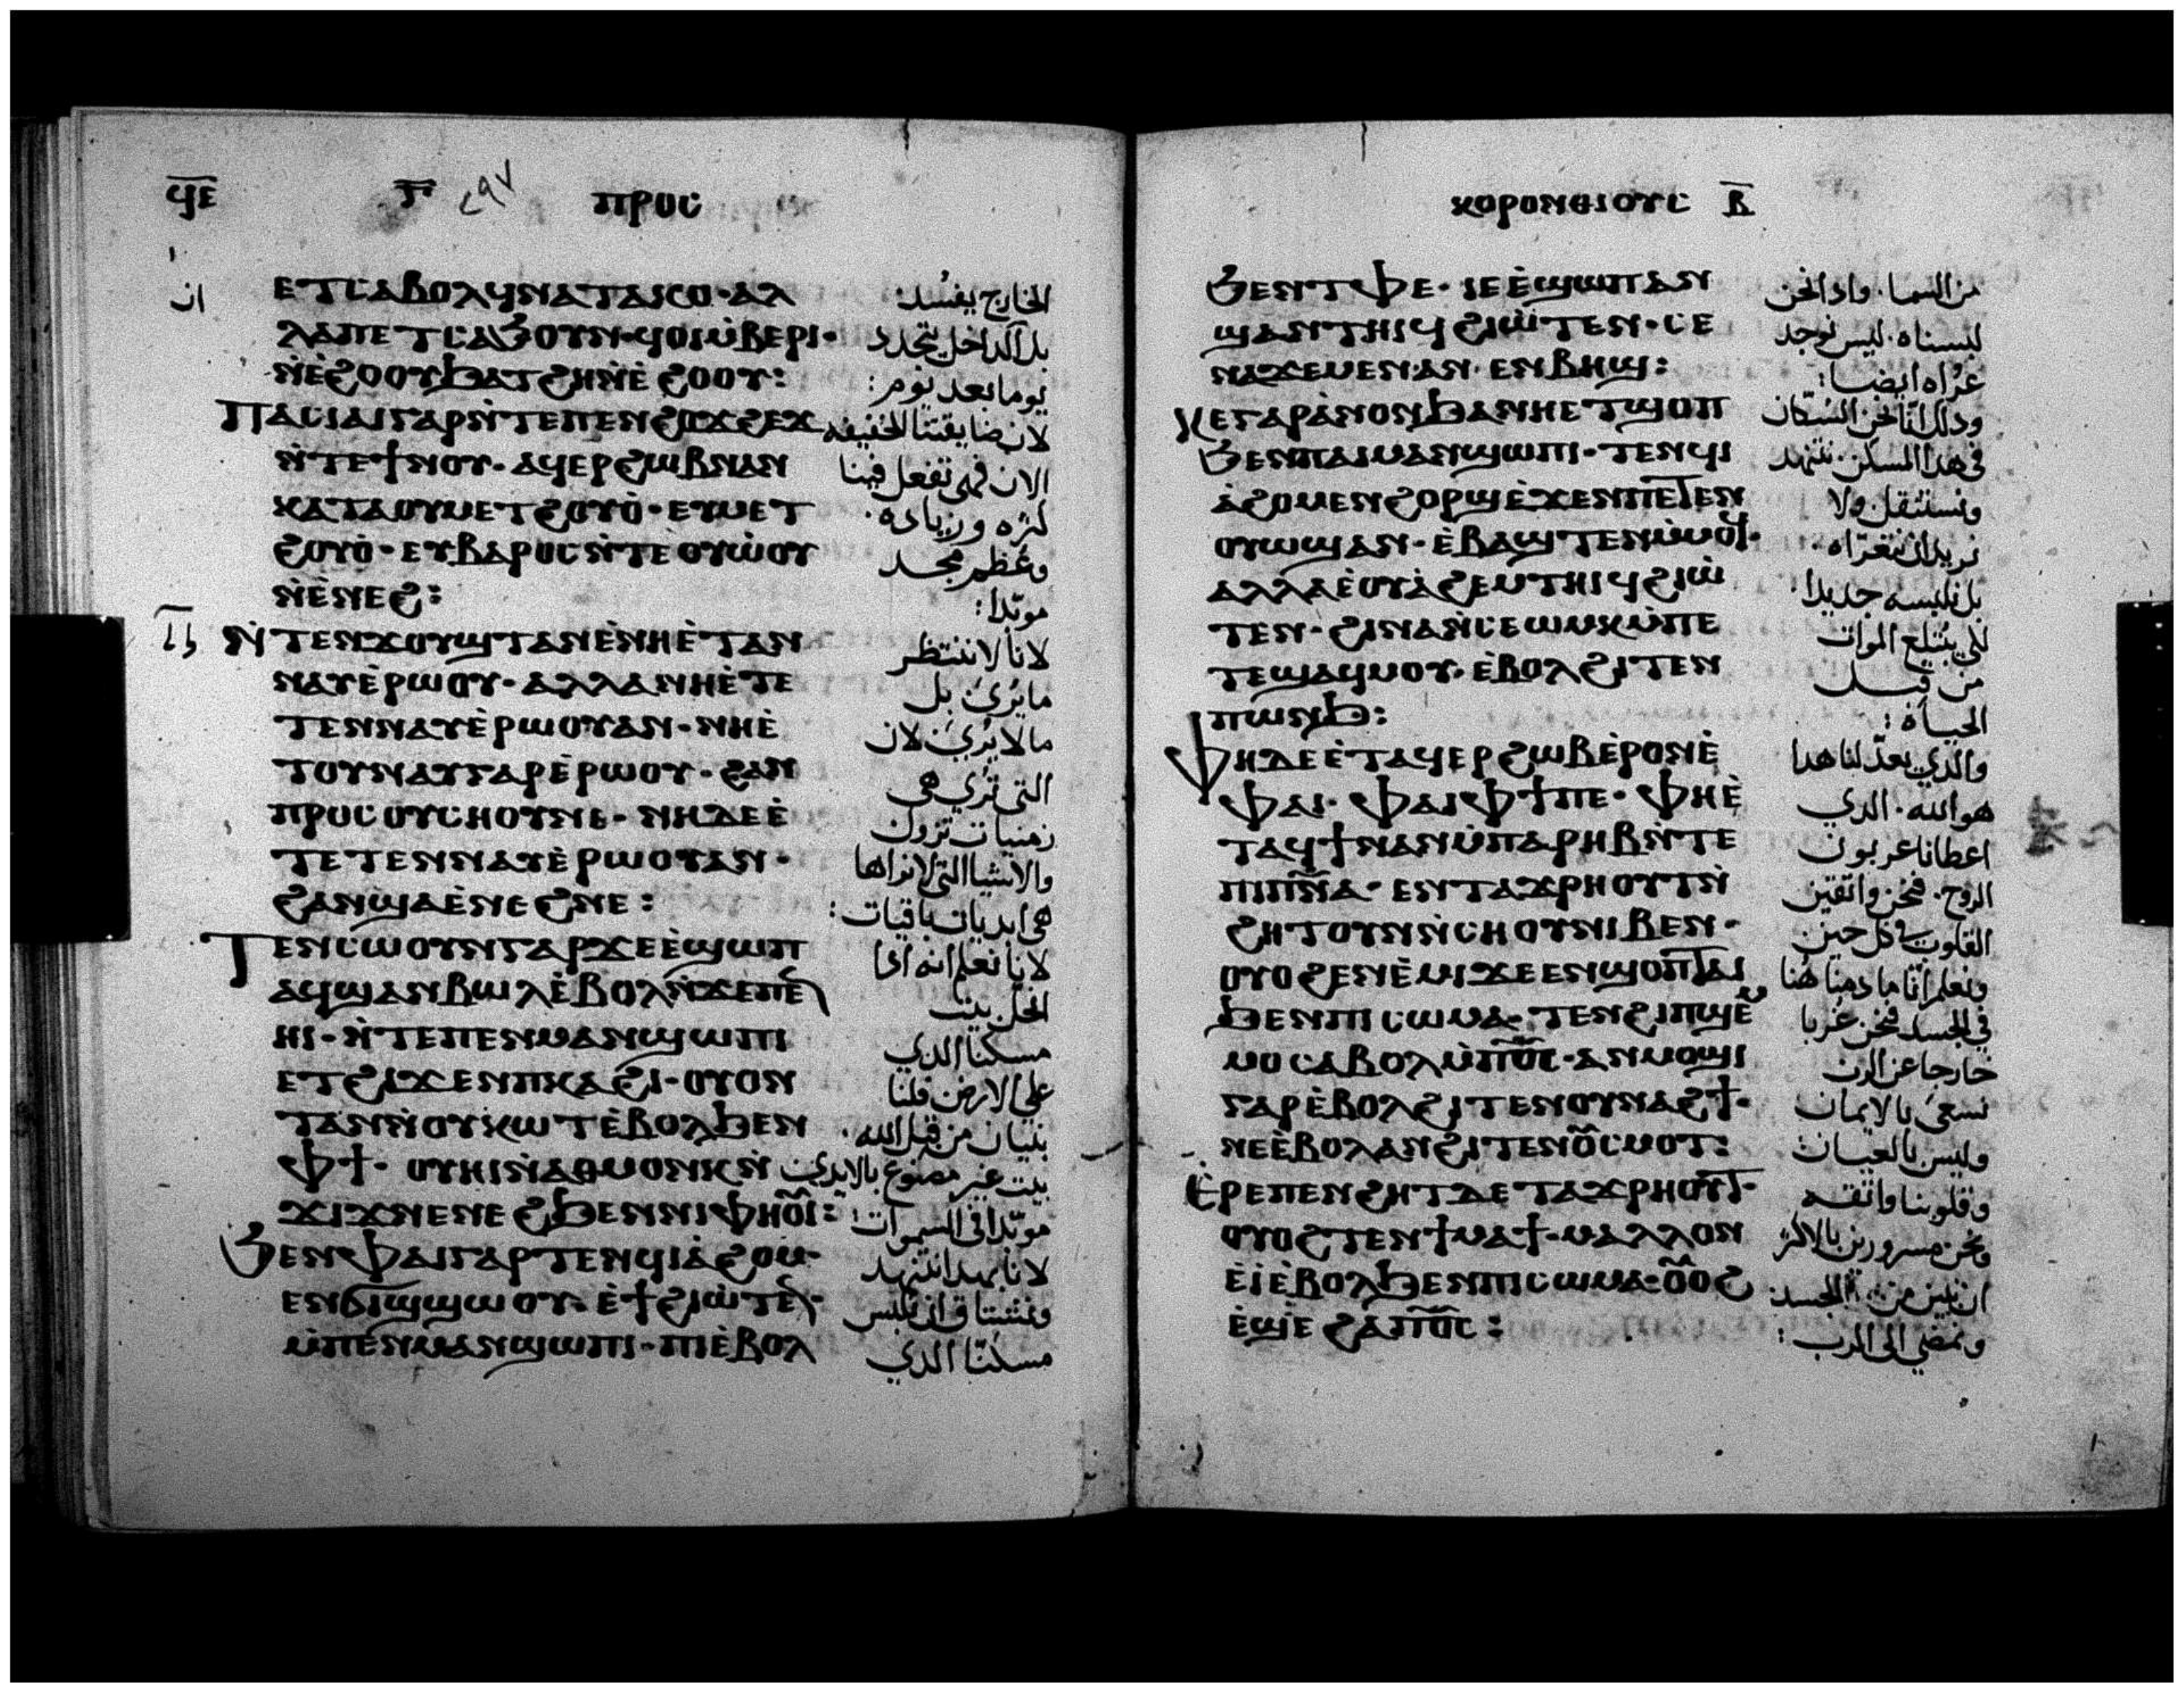 ϥ̅ⲉ̅ ⲅ̅ ٢٩٧ ⲡⲣⲟⲥ
ⲉⲧⲥⲁⲃⲟⲗϥⲛⲁⲧⲁⲕⲟ· ⲁⲗ
ⲗⲁⲡⲉⲧⲥⲁϧⲟⲩⲛ·ϥⲟⲓⲙ̀ⲃⲉⲣⲓ·
ⲛ̀ⲉ̀ϩⲟⲟⲩϧⲁⲧϩⲏⲛ̀ⲉ̀ϩⲟⲟⲩ:
ⲡⲁⲥⲓⲁⲓⲅⲁⲣⲛ̀ⲧⲉⲡⲉⲛϩⲟϫϩⲉϫ
ⲛ̀ⲧⲉϯⲛⲟⲩ· ⲁϥⲉⲣϩⲱⲃⲛⲁⲛ
ⲕⲁⲧⲁⲟⲩⲙⲉⲧϩⲟⲩⲟ̀· ⲉⲩⲙⲉⲧ
ϩⲟⲩⲟ̀· ⲉⲩⲃⲁⲣⲟⲥⲛ̀ⲧⲉⲟⲩⲱ̀ⲟⲩ
ⲛ̀ⲉ̀ⲛⲉϩ:
ⲛ̀ⲧⲉⲛϫⲟⲩϣⲧⲁⲛⲉ̀ⲛⲏⲉ̀ⲧⲁⲛ
ⲛⲁⲩⲉ̀ⲣⲱⲟⲩ· ⲁⲗⲗⲁⲛⲏⲉ̀ⲧⲉ
ⲧⲉⲛⲛⲁⲩⲉ̀ⲣⲱⲟⲩⲁⲛ· ⲛⲏⲉ̀
ⲧⲟⲩⲛⲁⲩⲅⲁⲣⲉ̀ⲣⲱⲟⲩ· ϩⲁⲛ
ⲡⲣⲟⲥⲟⲩⲥⲏⲟⲩⲛⲉ· ⲛⲏⲇⲉⲉ̀
ⲧⲉⲧⲉⲛⲛⲁⲩⲉ̀ⲣⲱⲟⲩⲁⲛ·
ϩⲁⲛϣⲁⲉ̀ⲛⲉϩⲛⲉ:
ⲧⲉⲛⲥⲱⲟⲩⲛⲅⲁⲣϫⲉⲉ̀ϣⲱⲡ
ⲁϥϣⲁⲛⲃⲱⲗⲉ̀ⲃⲟⲗⲛ̀ϫⲉⲡⲉ̅
ⲏⲓ· ⲛ̀ⲧⲉⲡⲉⲛⲙⲁⲛϣⲱⲡⲓ
ⲉⲧϩⲓϫⲉⲛⲡⲕⲁϩⲓ· ⲟⲩⲟⲛ
ⲧⲁⲛⲛ̀ⲟⲩⲕⲱⲧⲉ̀ⲃⲟⲗϧⲉⲛ
ⲫϯ· ⲟⲩⲏⲓⲛ̀ⲁⲑⲙⲟⲛⲕⲛ̀
ϫⲓϫⲛⲉⲛⲉϩϧⲉⲛⲛⲓⲫⲏⲟ̅ⲓ̅:
ϧⲉⲛⲫⲁⲓⲅⲁⲣⲧⲉⲛϥⲓⲁ̀ϩⲟⲙ
ⲉⲛϭⲓϣϣⲱⲟⲩ· ⲉ̀ϯϩⲓⲱ̀ⲧⲉ̅·
ⲙ̀ⲡⲉⲛⲙⲁⲛϣⲱⲡⲓ· ⲡⲓⲉ̀ⲃⲟⲗ
الخارج يفسد:
بل الداخل يتجدد
يوما بعد يوم:
لان ضايقتنا الخفيفه
الان فهى تفعل فينا
كثره وزياده·
وعظم مجد
موبدا:
لانا لا ننتظر
ما يرى بل
ما لا يرى لان
التى ترى هى
زمنيات تزول
والاشيا التى لا نراها
هى ابديات باقيات:
لانا نعلم انه اذا
انحل بيت
مسكننا الدي
على الارض فلنا
بنيان من قبل الله·
بيت غير مصنوع بالايدى
موبدا فى السموات:
لانا بهدا نتنهد
ونشتاق ان نلبس
مسكننا الدي
ⲕⲟⲣⲟⲛⲑⲓⲟⲩⲥ ⲃ̅
ϧⲉⲛⲧⲫⲉ· ⲓⲉⲉ̀ϣⲱⲡⲁⲛ
ϣⲁⲛⲧⲏⲓϥϩⲓⲱ̀ⲧⲉⲛ· ⲥⲉ
ⲛⲁϫⲉⲙⲉⲛ·ⲁⲛ· ⲉⲛⲃⲏϣ:
ⲕⲉⲅⲁⲣⲁ̀ⲛⲟⲛϧⲁⲛⲏⲉⲧϣⲟⲡ
ϧⲉⲛⲡⲁⲓⲙⲁⲛϣⲱⲡⲓ· ⲧⲉⲛϥⲓ
ⲁ̀ϩⲟⲙⲉⲛϩⲟⲣϣⲉ̀ϫⲉⲛⲡⲉⲧⲉⲛ
ⲟⲩⲱϣⲁⲛ· ⲉ̀ⲃⲁϣⲧⲉⲛⲙ̀ⲙⲟϥ·
ⲁⲗⲗⲁⲉ̀ⲟⲩⲁ̀ϩⲉⲙⲧⲏⲓϥϩⲓⲱ̀
ⲧⲉⲛ· ϩⲓⲛⲁⲛ̀ⲥⲉⲱⲙⲕⲙ̀ⲡⲉ
ⲧⲉϣⲁϥⲙⲟⲩ· ⲉ̀ⲃⲟⲗϩⲓⲧⲉⲛ
ⲡⲱⲛϧ:
ⲫⲏⲇⲉⲉ̀ⲧⲁϥⲉⲣϩⲱⲃⲉ̀ⲣⲟⲛⲉ̀
ⲫⲁⲓ· ⲫⲁⲓⲫϯⲡⲉ· ⲫⲏⲉ̀
ⲧⲁϥϯⲛⲁⲛⲙ̀ⲡⲁⲣⲏⲃⲛ̀ⲧⲉ
ⲡⲓⲡ̅ⲛ̅ⲁ̅· ⲉⲛⲧⲁϫⲣⲏⲟⲩⲧⲛ̀
ϩⲏⲧⲟⲩⲛⲛ̀ⲥⲏⲟⲩⲛⲓⲃⲉⲛ·
ⲟⲩⲟϩⲉⲛⲉ̀ⲙⲓϫⲉⲉⲛϣⲟⲡⲧⲁⲓ
ϧⲉⲛⲡⲓⲥⲱⲙⲁ· ⲧⲉⲛϩⲓⲡϣⲉ̀ⲙ
ⲙⲟⲥⲁⲃⲟⲗⲙ̀ⲡ̅ⲟ̅ⲥ̅·ⲁⲛⲙⲟϣⲓ
ⲅⲁⲣⲉ̀ⲃⲟⲗϩⲓⲧⲉⲛⲟⲩⲛⲁϩϯ·
ⲛⲉⲉ̀ⲃⲟⲗⲁⲛϩⲓⲧⲉⲛⲟ̅ⲥⲙⲟⲧ:
ⲉ̀ⲣⲉⲡⲉⲛϩⲏⲧⲇⲉⲧⲁϫⲣⲏⲟⲩⲧ·
ⲟⲩⲟϩⲧⲉⲛϯⲙⲁϯ·ⲙⲁⲗⲗⲟⲛ
ⲉ̀ⲓⲉ̀ⲃⲟⲗϧⲉⲛⲡⲓⲥⲱⲙⲁ·ⲟ̅ⲟϩ
ⲉ̀ϣⲉϩⲁⲡ̅ⲟ̅ⲥ̅:
من السما· واد انحن
لبسناه· ليس نوجد
عراه ايضا:
ودلك انا نحن السكان
فى هدا المسكن· نتنهد
ونستثقل ولا
نريد ان نتعراه·
بل نلبسه جديدا
لكى يبتلع الموات
من قبل
الحياه:
والدي يعد لنا هدا
هو الله· الدي
اعطانا عربون
الروح· فنحن واثقين
القلوب فى كل حين
ونعلم انا ما دمنا هنا
في الجسد فنحن غربا
خارجا عن الرب
نسعى بالايمان
وليس بالعيان
وقلوبنا واثقه
ونحن مسرورين بالاكثر
ان نبين من الجسد
ونمضي الى الرب: